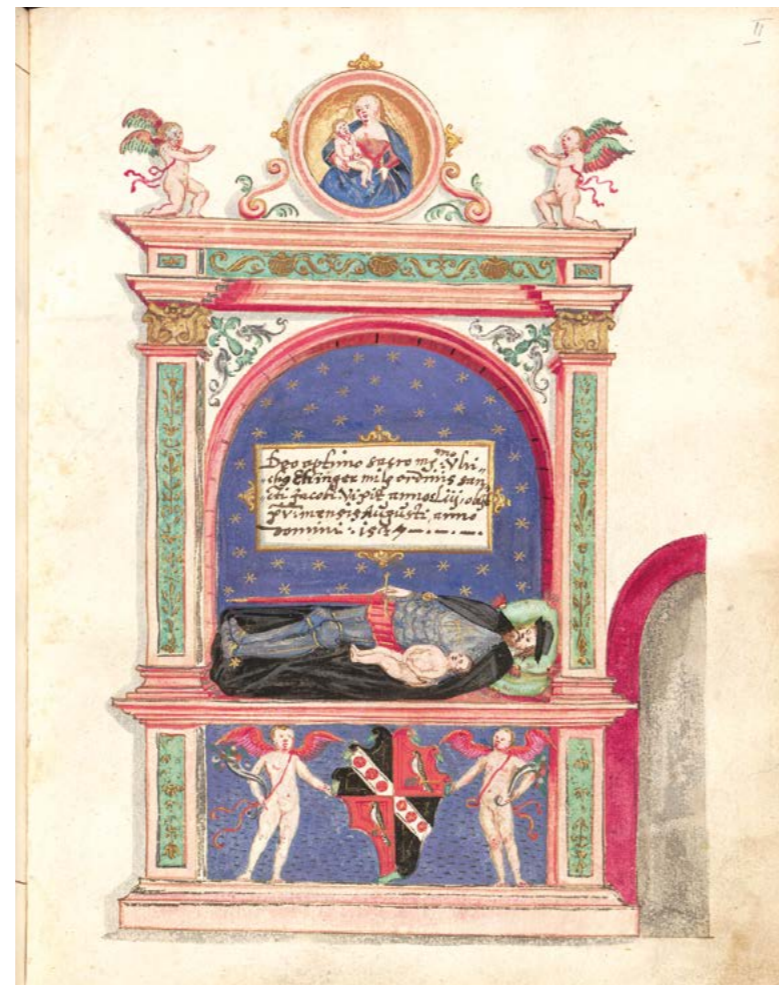 II
Deo optimo sacro m^mo Vlri-
cho Ehinger milς ordinis san-
cti Jacobi Vixit annos Liij, obijt
prima mensis Augusti, anno
Domini · 1537